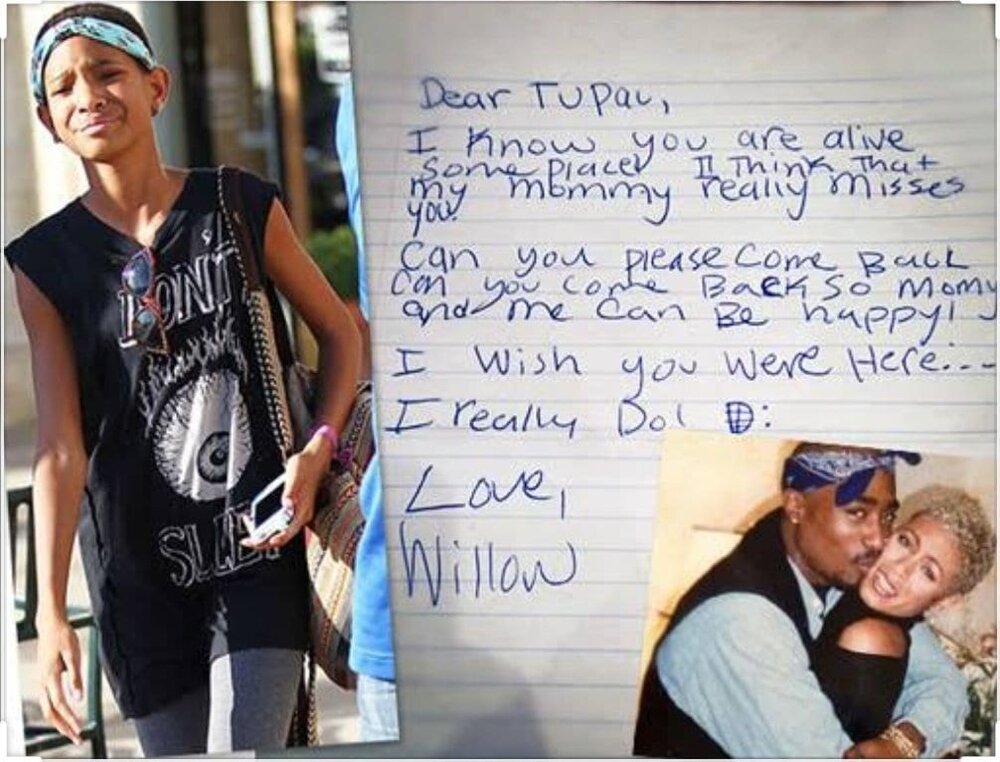 DON'T
SLEEP
Dear Tupac,
I Know you are alive
Some Place! I Think That
my mommy really misses
you!
Can you please come Back
Can you come Back so Momy
and me can Be happy!
I Wish you Were Here...
I really Do!
Love,
Willow